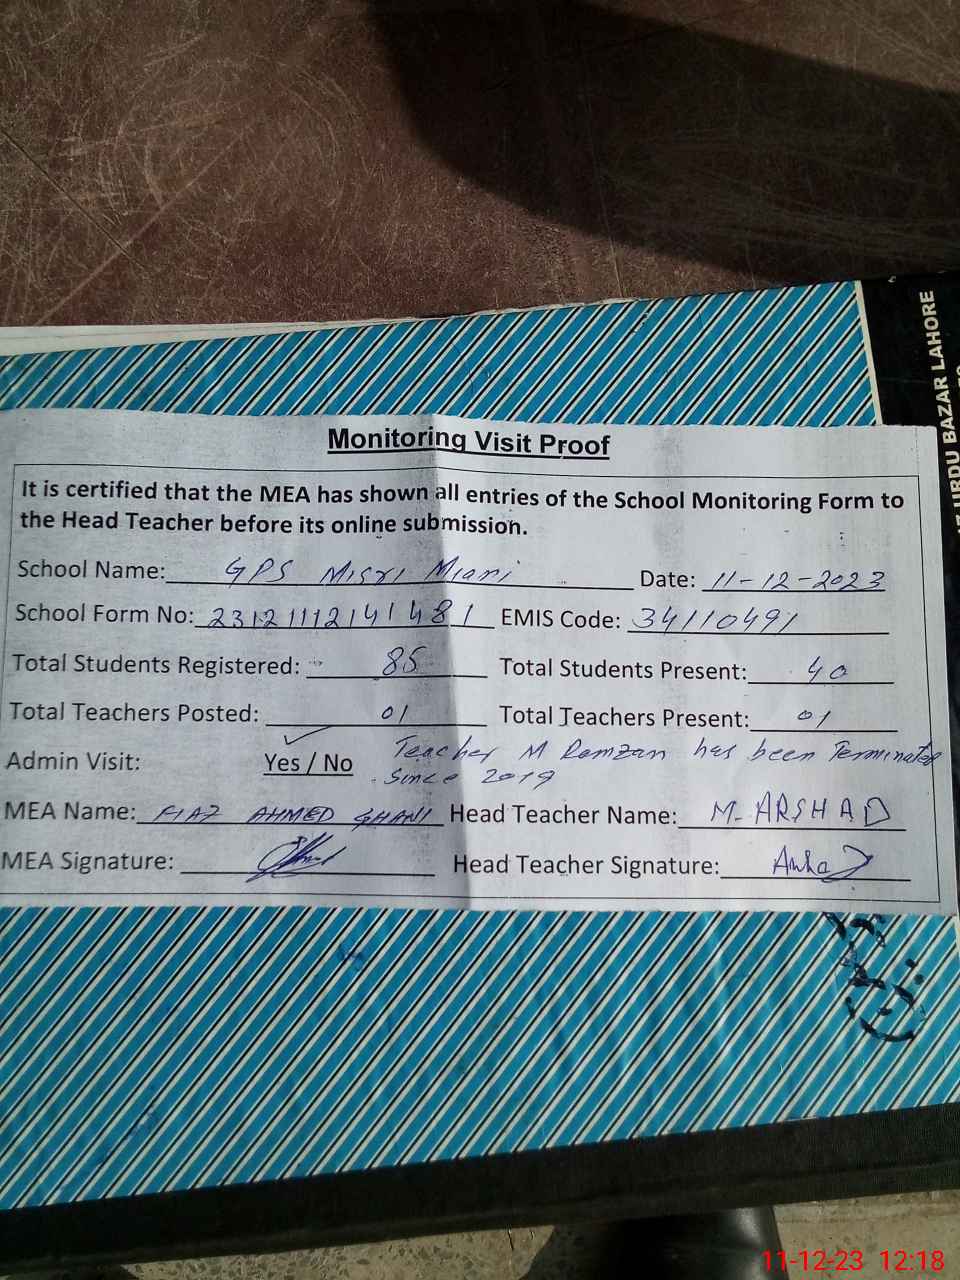 Z URDU BAZAR LAHORE
Monitoring Visit Proof
It is certified that the MEA has shown all entries of the School Monitoring Form to
the Head Teacher before its online submission.
School Name: GPS Misri Miani Date: 11-12-2023
School Form No: 23121112141481 EMIS Code: 34110491
Total Students Registered: 85 Total Students Present: 40
Total Teachers Posted: 01 Total Teachers Present: 01
Admin Visit: Yes / No Teacher M Ramzan has been Terminated
since 2019
MEA Name: FIAZ AHMED GHANI Head Teacher Name: M. ARSHAD
MEA Signature: Head Teacher Signature:
11-12-23 12:18